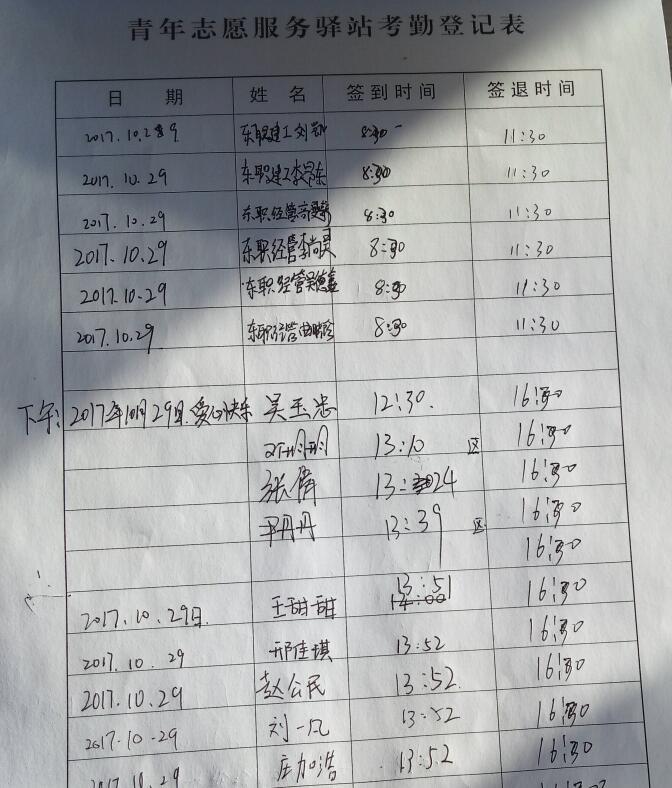 青年志愿服务驿站考勤登记表
日 期 姓 名 签到时间 签退时间
2017.10.29 东职建工刘 8:30 11:30
2017.10.29 东职建工李 8:30 11:30
2017.10.29 东职经管 8:30 11:30
2017.10.29 东职经管李尚昊 8:30 11:30
2017.10.29 东职经管 8:30 11:30
2017.10.29 东职经管曲 8:30 11:30
下午: 2017年10月29日.爱心快乐 吴玉忠 12:30. 16:30
13:10 区 16:30
张倩 13:24 16:30
尹丹丹 13:39 区 16:30
16:30
2017.10.29日. 王甜甜 13:51 14:00 16:30
2017.10.29 邢佳琪 13:52 16:30
2017.10.29 赵公民 13:52 16:30
2017.10-29 刘一凡 13:52 16:30
2017.10.29 庄加浩 13:52 16:30